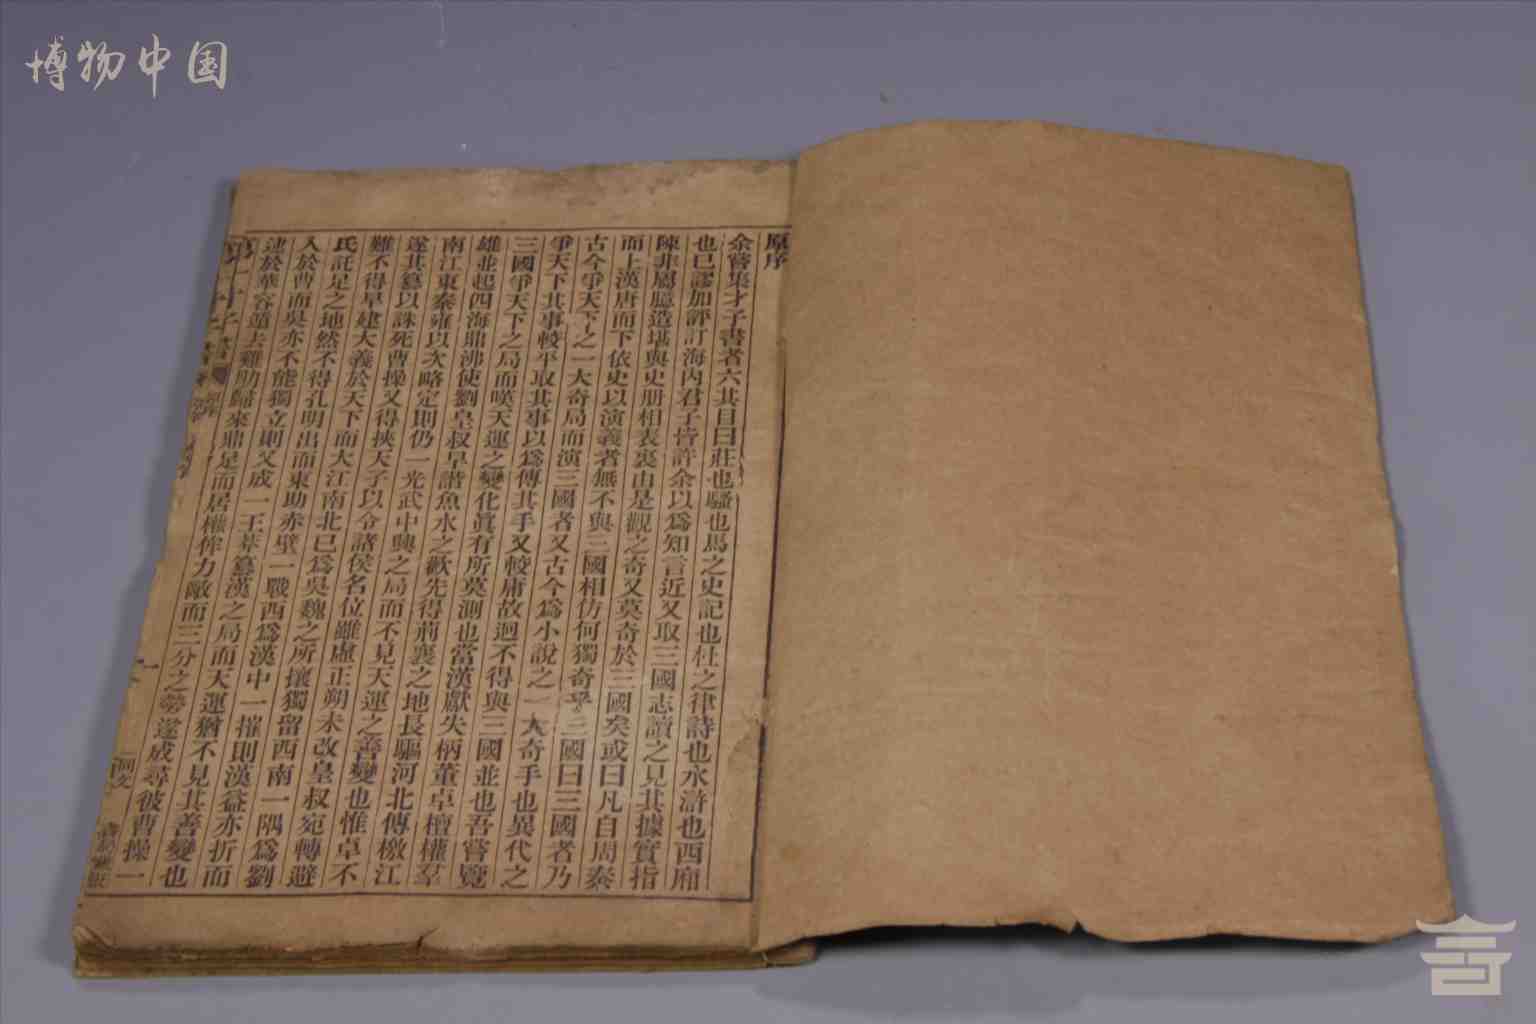 博物中国
原序
余嘗集才子書者六其目曰莊也騷也馬之史記也杜之律詩也水滸也西廂
也已謬加評訂海內君子皆許余以爲知言近又取三國志讀之見其據實指
陳非屬臆造堪與史册相表裏由是觀之奇又莫奇於三國矣或曰凡自周秦
而上漢唐而下依史以演義者無不與三國相仿何獨奇乎三國曰三國者乃
古今爭天下之一大奇局而演三國者又古今爲小說之一大奇手也異代之
爭天下其事較平取其事以爲傳其手又較庸故迥不得與三國並也吾嘗覽
三國爭天下之局而嘆天運之變化眞有所莫測也當漢獻失柄董卓檀權羣
雄並起四海鼎沸使劉皇叔早諧魚水之歡先得荊襄之地長驅河北傳檄江
南江東秦雍以次略定則仍一光武中興之局而不見天運之善變也惟卓不
遂其篡以誅死曹操又得挾天子以令諸侯名位雖虛正朔未改皇叔宛轉避
難不得早建大義於天下而大江南北已爲吳魏之所攘獨留西南一隅爲劉
氏託足之地然不得孔明出而東助赤壁一戰西爲漢中一摧則漢益亦折而
入於曹而吳亦不能獨立則又成一王莽篡漢之局而天運猶不見其善變也
逮於華容遁去雞肋歸來鼎足而居權侔力敵而三分之勢遂成尋彼曹操一
第一才子書